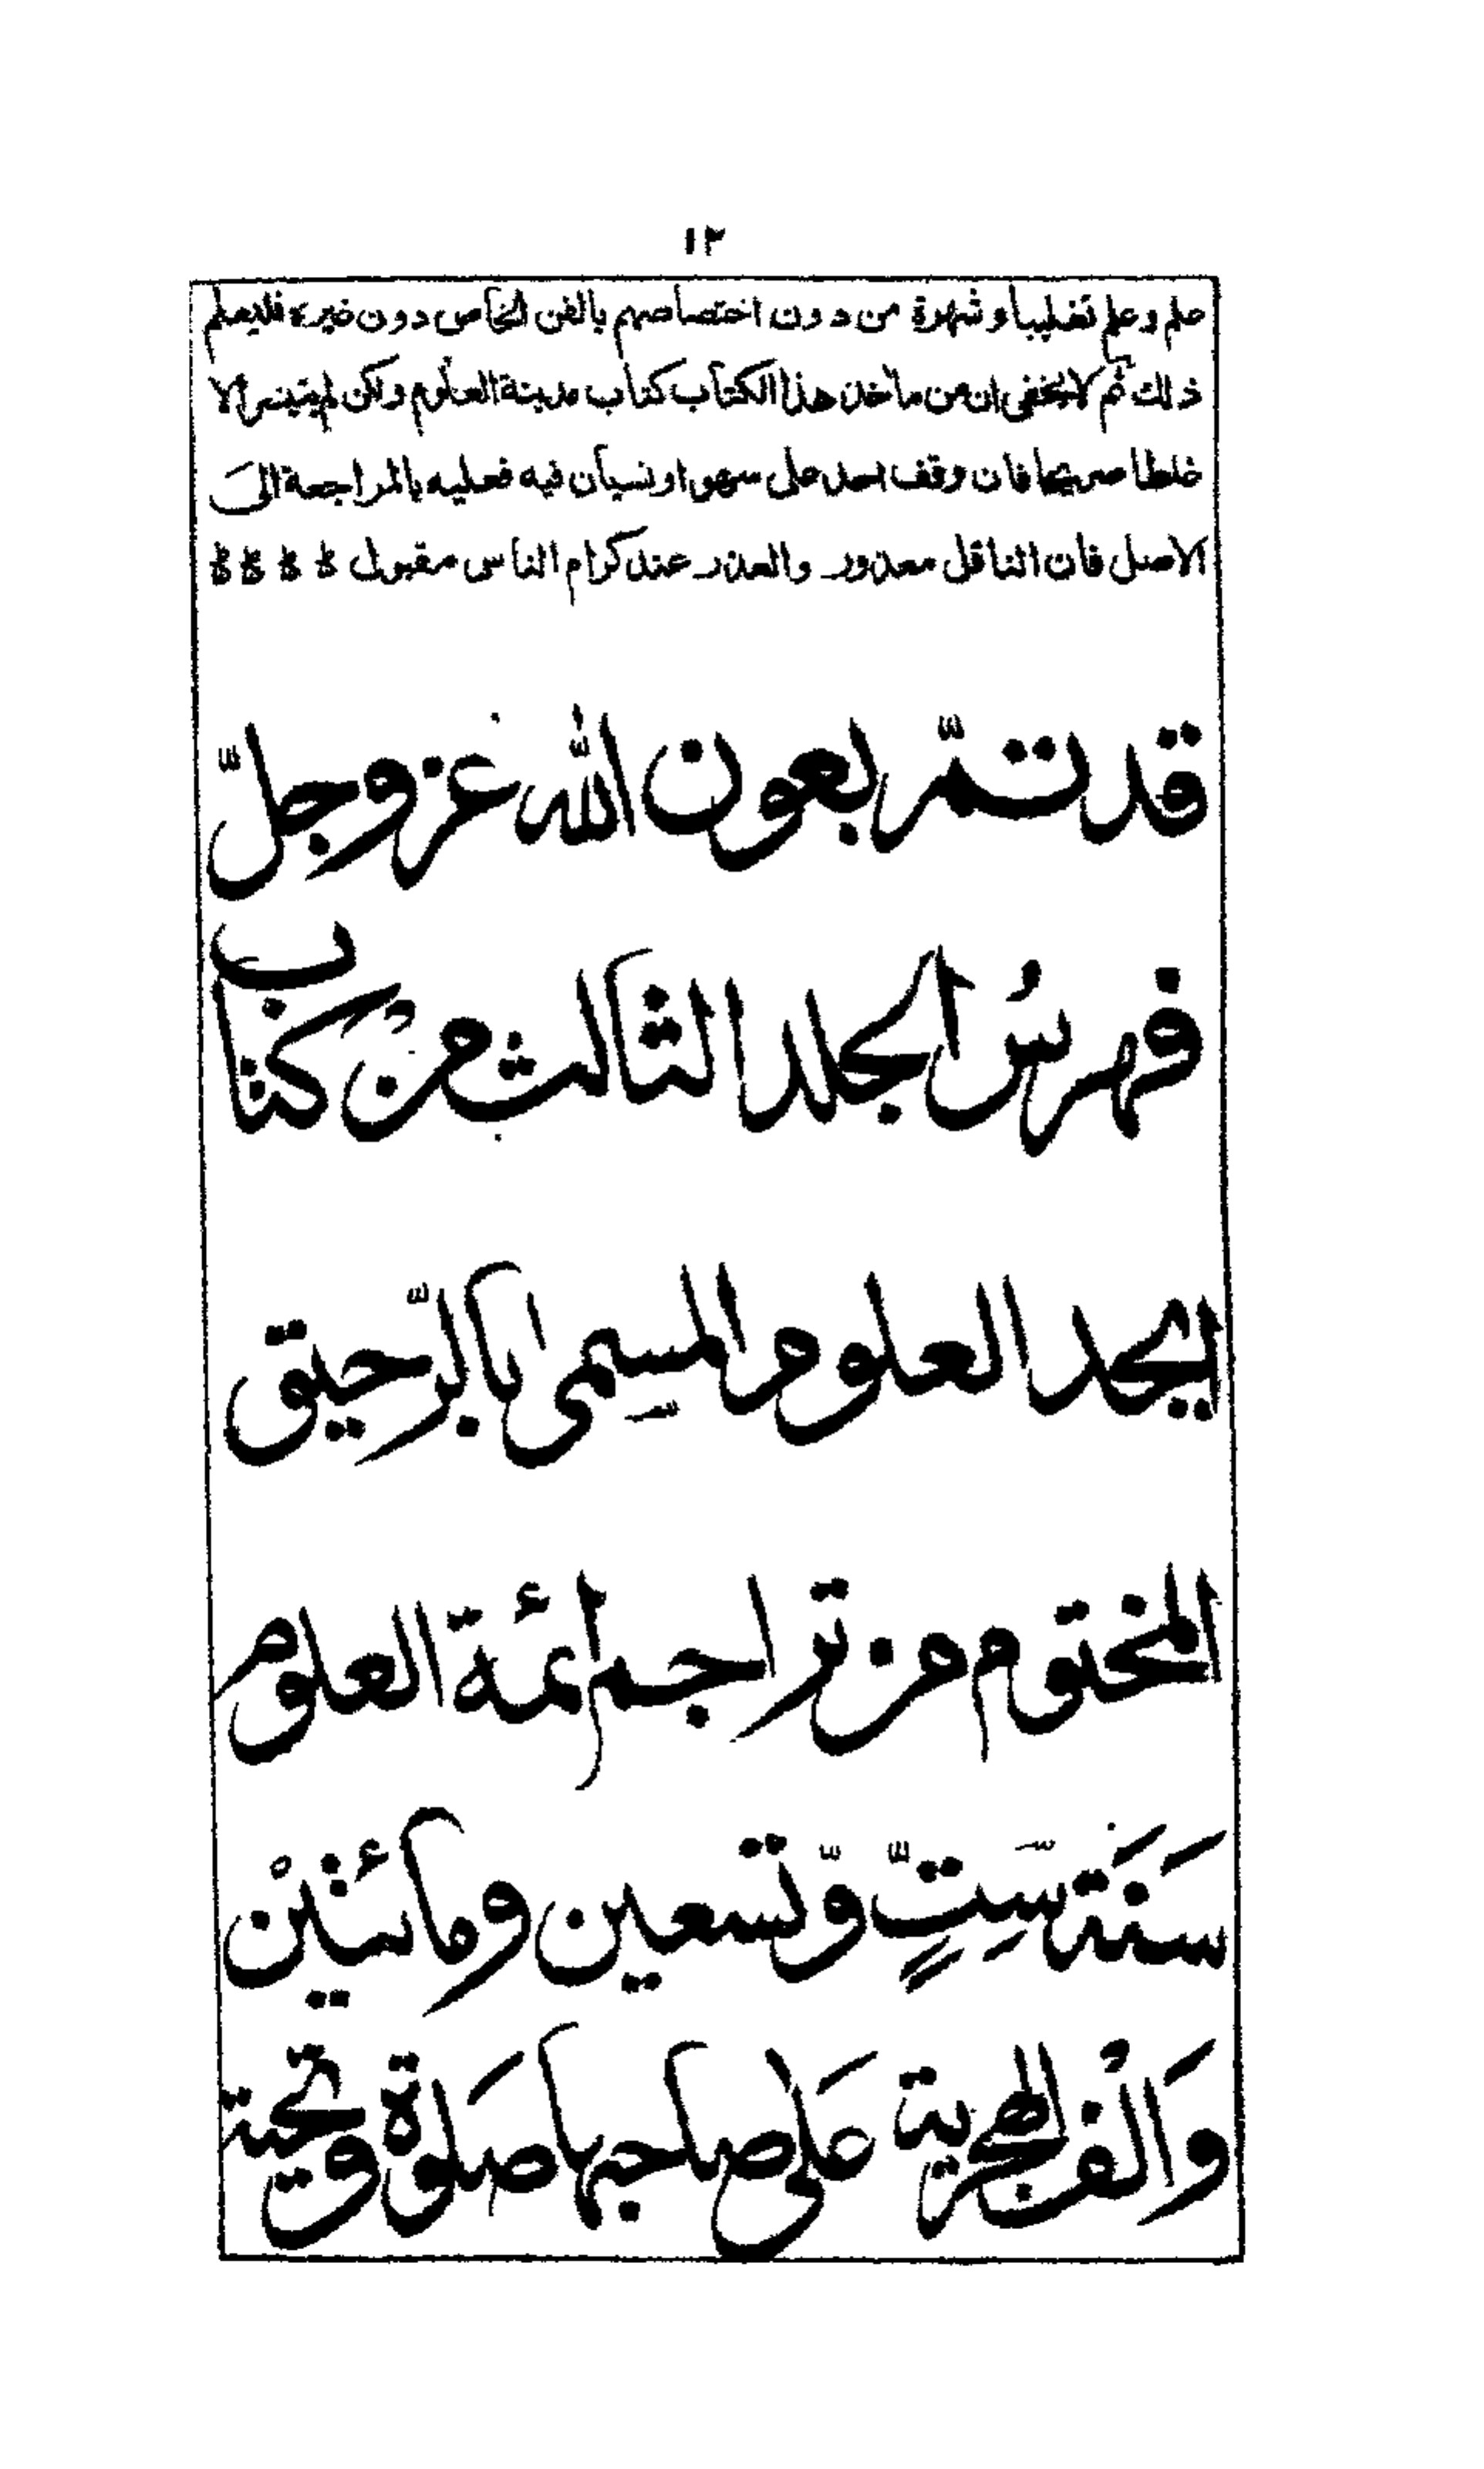 ١٢
علم وعلم تغليبا وشهرة من دون اختصاصهم بالفن الخاص دون غيره فليعلم
ذلك ثم لا يخفى ان من مأخذ هذا الكتاب كتاب مدينة العلوم ولكن لم يتيسر الا
غلطا صريحا فان وقف احد على سهو او نسيان فيه فعليه بالمراجعة الىَ
الاصل فان الناقل معذور والعذر عند كرام الناس مقبول
قد تمّ بعون اللّٰه عز وجلّ
فهرسُ المجلد الثالث منْ كتاب
ابجد العلوم المسمى بالرّحيق
المختوم من تراجم ائمة العلوم
سَنَة سِتٍّ وّتسعين ومائتيْن
وَالْف الهجرية عَلى صاحبها صَلوة وتحية